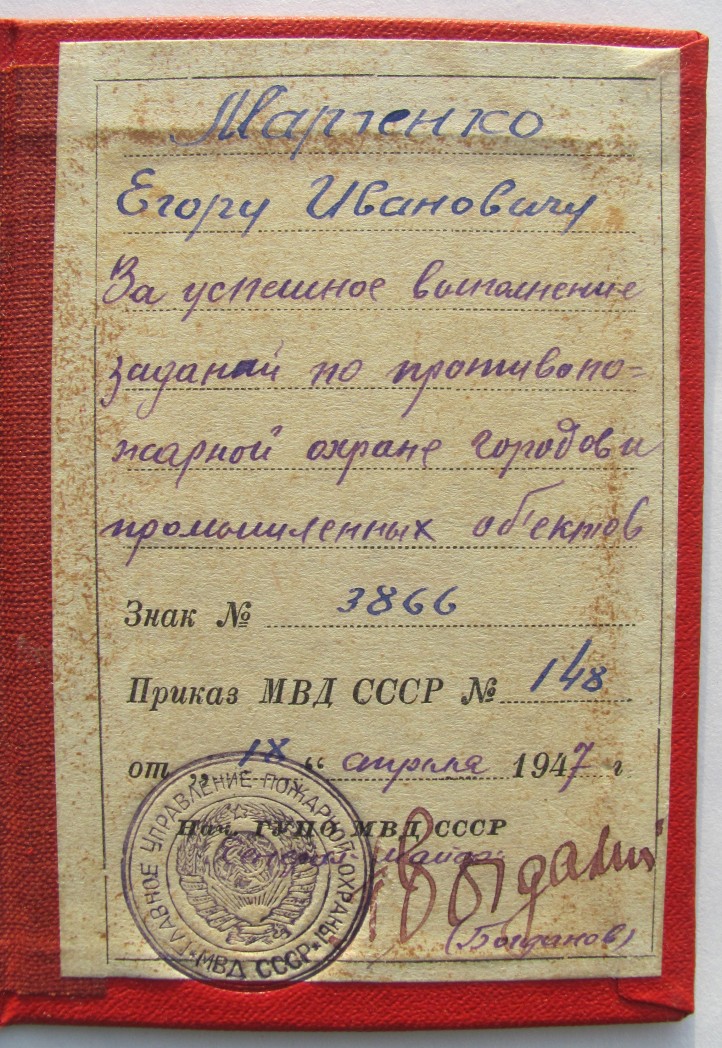 Марченко
Егору Ивановичу
За успешное выполнение
заданий по противопо-
жарной охране городов и
промышленных об'ектов
Знак № 3866
Приказ МВД СССР № 148
от „ 18 “ апреля 1947 г
Нач. ГУПО МВД СССР
Генерал-майор
(Богданов)
ГЛАВНОЕ УПРАВЛЕНИЕ ПОЖАРНОЙ ОХРАНЫ
МВД СССР